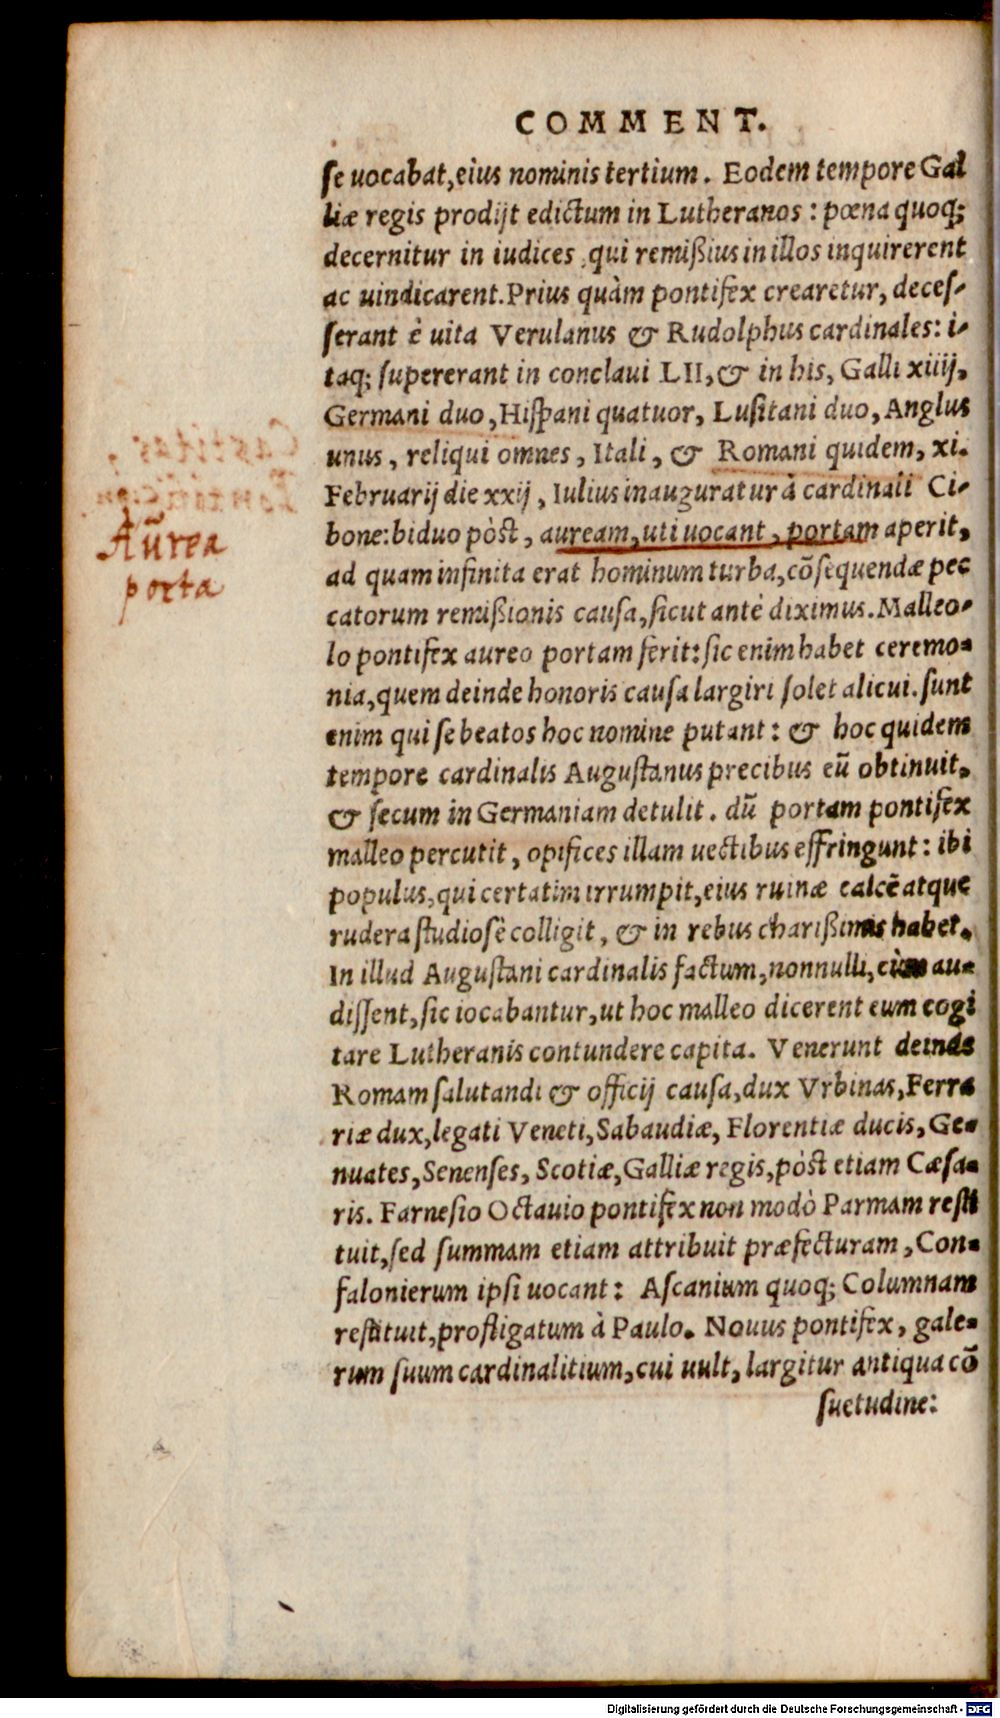 COMMENT.
ſe uocabat, eius nominis tertium. Eodem tempore Gal
liæ regis prodijt edictum in Lutheranos: pœna quoq;
decernitur in iudices, qui remißius in illos inquirerent
ac uindicarent. Prius quàm pontifex crearetur, deceſ-
ſerant è uita Verulanus & Rudolphus cardinales: i-
taq; ſupererant in conclaui LII, & in his, Galli xiiij,
Germani duo, Hiſpani quatuor, Luſitani duo, Anglus
unus, reliqui omnes, Itali, & Romani quidem, xi.
Februarij die xxij, Iulius inauguratur à cardinali Ci-
bone: biduo pòst, auream, uti uocant, portam aperit,
Aũrea
porta
ad quam infinita erat hominum turba, cõſequendæ pec
catorum remißionis cauſa, ſicut antè diximus. Malleo-
lo pontifex aureo portam ferit: ſic enim habet ceremo-
nia, quem deinde honoris cauſa largiri ſolet alicui. ſunt
enim qui ſe beatos hoc nomine putant: & hoc quidem
tempore cardinalis Auguſtanus precibus eũ obtinuit,
& ſecum in Germaniam detulit. dũ portam pontifex
malleo percutit, opifices illam uectibus effringunt: ibi
populus, qui certatim irrumpit, eius ruinæ calcẽ atque
rudera ſtudioſè colligit, & in rebus charißimis habet.
In illud Auguſtani cardinalis factum, nonnulli, cùm au-
diſſent, ſic iocabantur, ut hoc malleo dicerent eum cogi
tare Lutheranis contundere capita. Venerunt deinde
Romam ſalutandi & officij cauſa, dux Vrbinas, Ferra
riæ dux, legati Veneti, Sabaudiæ, Florentiæ ducis, Ge-
nuates, Senenſes, Scotiæ, Galliæ regis, pòst etiam Cæſa-
ris. Farneſio Octauio pontifex non modò Parmam reſti
tuit, ſed ſummam etiam attribuit præfecturam, Con-
falonierum ipſi uocant: Aſcanium quoq; Columnam
reſtituit, profligatum à Paulo. Nouus pontifex, gale-
rum ſuum cardinalitium, cui uult, largitur antiqua cõ
ſuetudine:
Digitalisierung gefördert durch die Deutsche Forschungsgemeinschaft - DFG